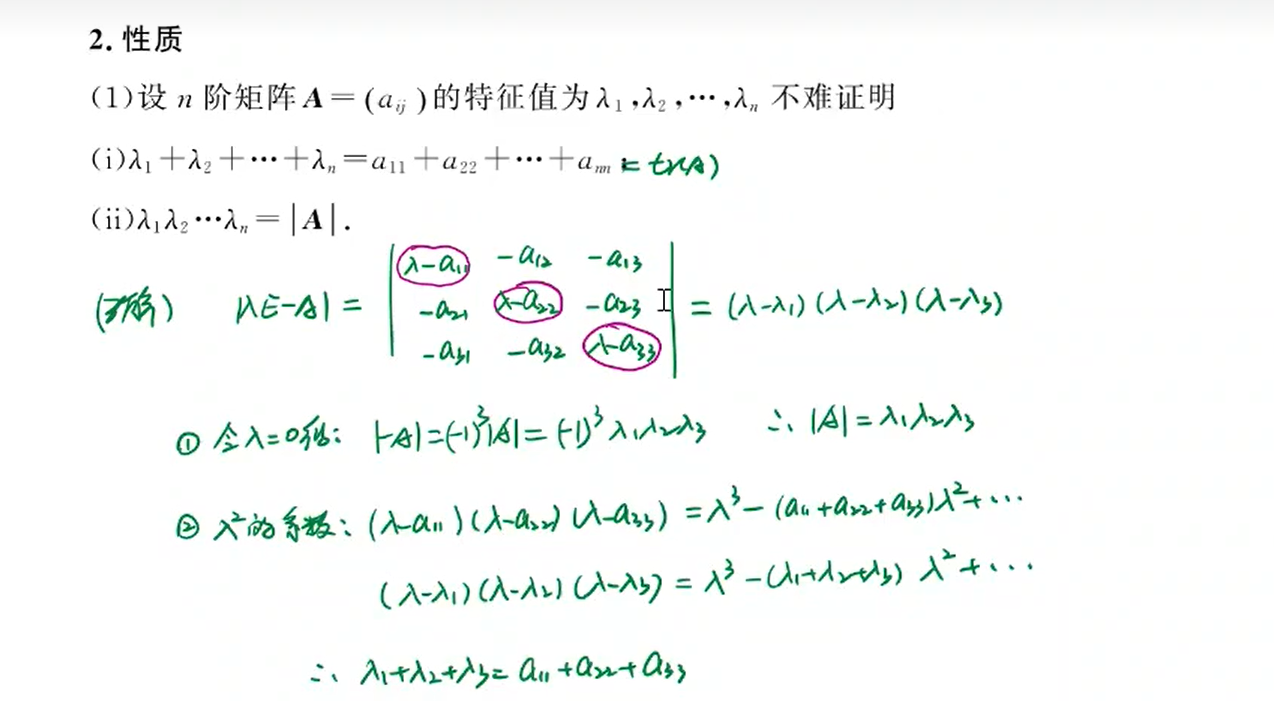 2. 性质
(1)设 n 阶矩阵 A=(aᵢⱼ)的特征值为 λ₁,λ₂,⋯,λₙ 不难证明
(i)λ₁+λ₂+⋯+λₙ=a₁₁+a₂₂+⋯+aₙₙ = tr(A)
(ii)λ₁λ₂⋯λₙ=|A|.
|λE-A| = | λ-a₁₁ -a₁₂ -a₁₃ |
| -a₂₁ λ-a₂₂ -a₂₃ | = (λ-λ₁)(λ-λ₂)(λ-λ₃)
| -a₃₁ -a₃₂ λ-a₃₃ |
① 令λ=0得: |-A|=(-1)³|A|=(-1)³λ₁λ₂λ₃ ∴ |A|=λ₁λ₂λ₃
② λ²的系数: (λ-a₁₁)(λ-a₂₂)(λ-a₃₃) = λ³-(a₁₁+a₂₂+a₃₃)λ²+⋯
(λ-λ₁)(λ-λ₂)(λ-λ₃) = λ³-(λ₁+λ₂+λ₃)λ²+⋯
∴ λ₁+λ₂+λ₃= a₁₁+a₂₂+a₃₃